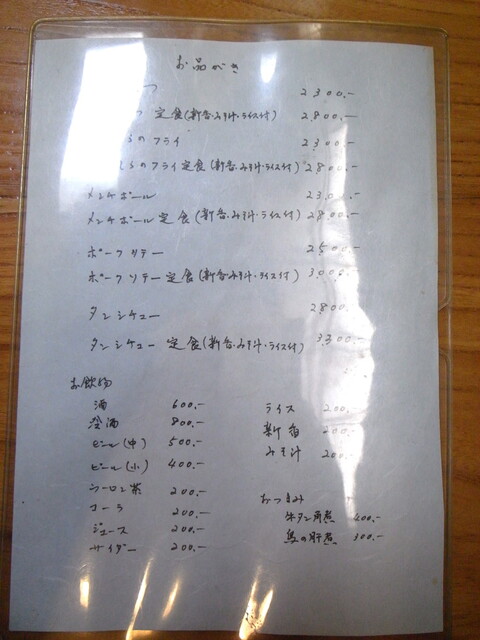 お品がき
つ 2300.-
定食(新香・みそ汁・ライス付) 2800.-
のフライ 2300.-
のフライ定食(新香・みそ汁・ライス付) 2800.-
メンチボール 2300.-
メンチボール定食(新香・みそ汁・ライス付) 2800.-
ポークソテー 2500.-
ポークソテー定食(新香・みそ汁・ライス付) 3000.-
タンシチュー 2800.-
タンシチュー 定食(新香・みそ汁・ライス付) 3300.-
お飲物
酒 600.-
冷酒 800.-
ビール(中) 500.-
ビール(小) 400.-
ウーロン茶 200.-
コーラ 200.-
ジュース 200.-
サイダー 200.-
ライス 200.-
新香 200.-
みそ汁 200.-
おつまみ
牛タン角煮 400.-
鳥の肝煮 300.-